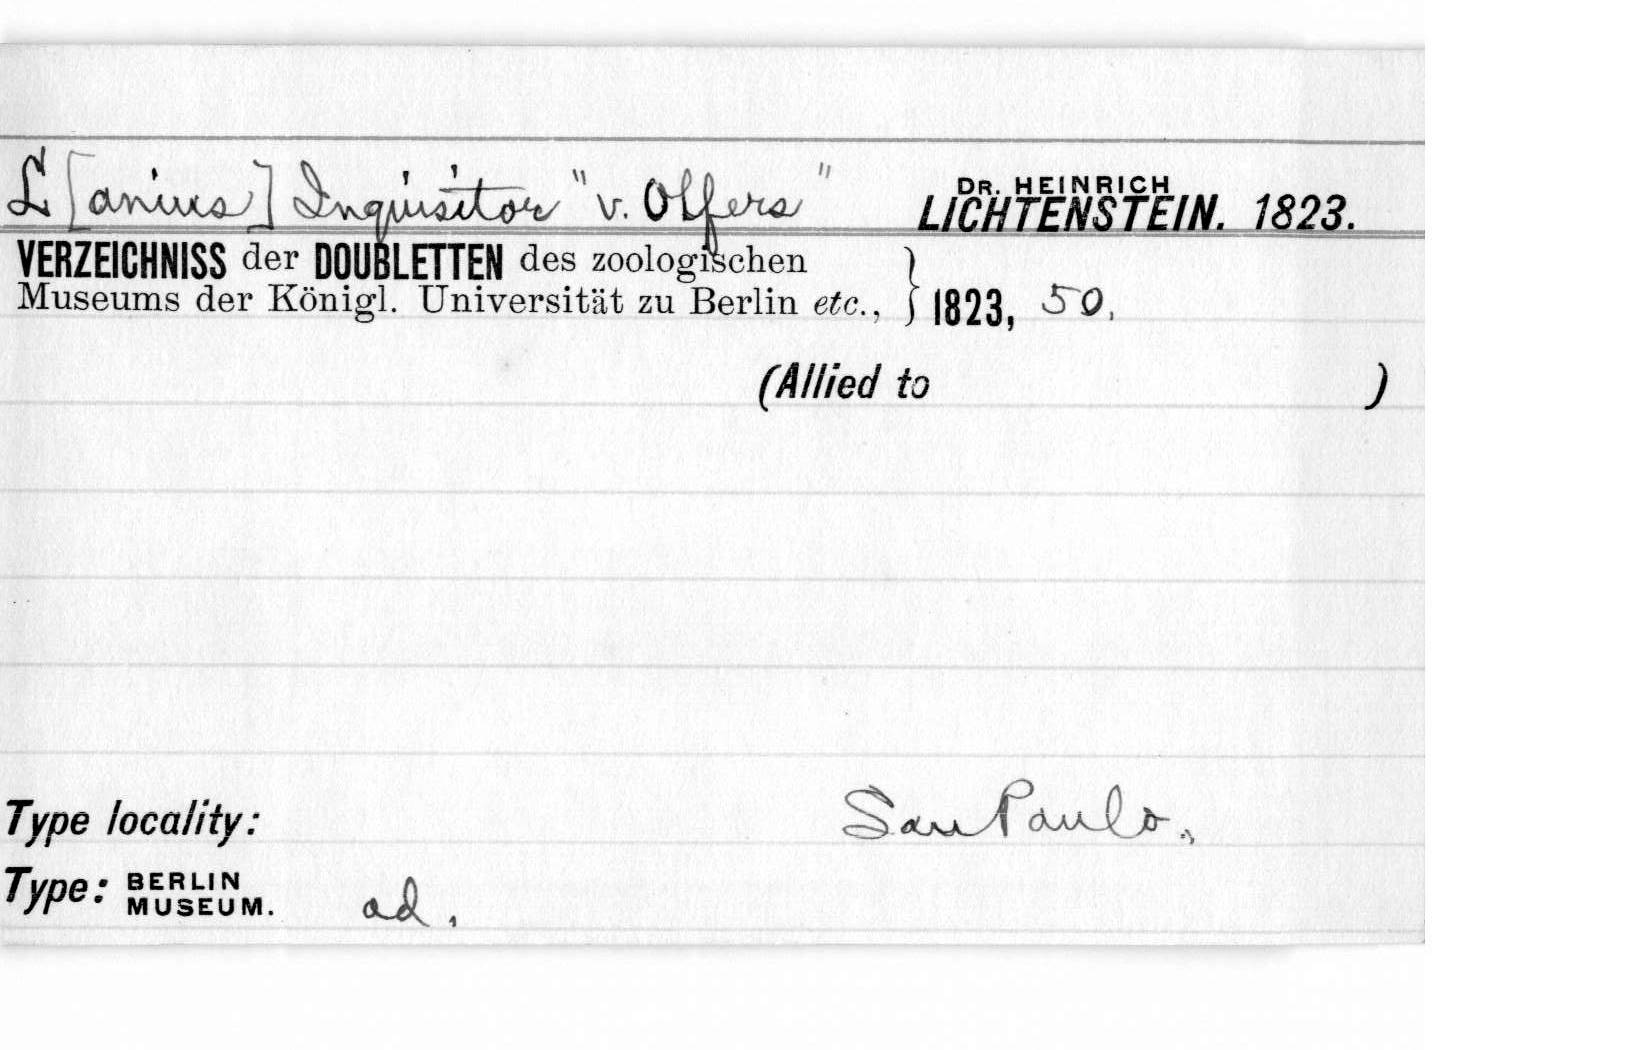 L[anius] Inquisitor "v. Olfers" DR. HEINRICH LICHTENSTEIN. 1823.
VERZEICHNISS der DOUBLETTEN des zoologischen
Museums der Königl. Universität zu Berlin etc., } 1823, 50.
(Allied to )
Type locality: San Paulo.,
Type: BERLIN MUSEUM. ad.